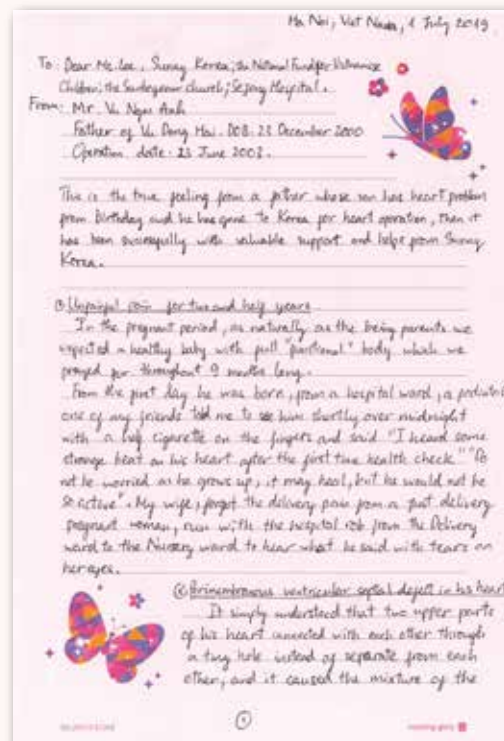 Ha Noi, Viet Nam, 1 July 2019
To: Dear Ms. Lee, Sunny Korea, the National Fund for Vietnamese
Children, the Sundeogwon church, Sejong Hospital.
From: Mr. Vu Ngoc Anh
Father of Vu Dong Hai. DOB: 23 December 2000
Operation date: 23 June 2003.
This is the true feeling from a father whose son has heart problem
from Birthday and he has gone to Korea for heart operation, then it
has been successfully with valuable support and helps from Sunny
Korea.
pain for two and half years
In the pregnant period, as naturally as the being parents we
expected a healthy baby with full "functional" body which we
prayed for throughout 9 months long.
From the first day he was born, from a hospital ward, a
one of my friends told me to see him shortly over midnight
with a half cigarette on the fingers and said "I heard some
strange beat on his heart after the first time health check" "Do
not be worried as he grows up, it may heal, but he would not be
so active". My wife, forgot the delivery pain from a just delivery
pregnant woman, run with the hospital rob from the Delivery
ward to the Nursery ward to hear what he said with tears on
her eyes.
ventricular septal defect in his heart
It simply understood that two upper parts
of his heart connected with each other through
a tiny hole instead of separate from each
other, and it caused the mixture of the
1